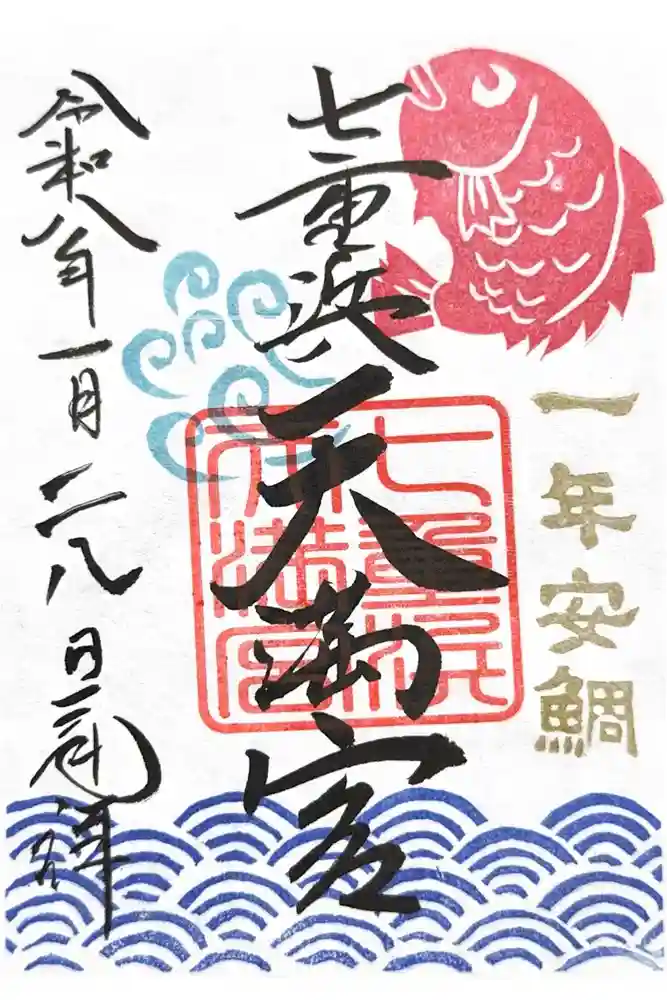 一年安鯛
七重浜天満宮
七重浜
天満宮
令和八年一月二八日 奉拝